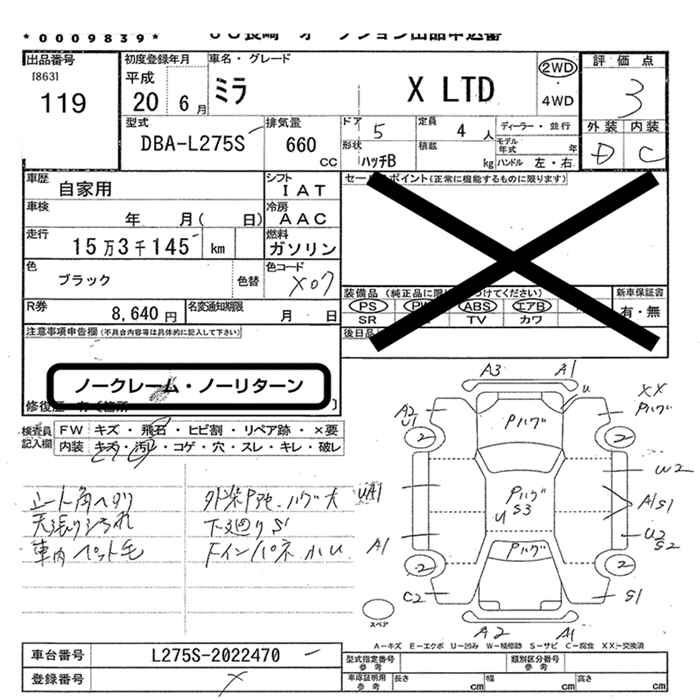 *0009839*
出品番号 初度登録年月 車名・グレード 評価点
[863] 平成 ミラ X LTD 2WD ・ 4WD 3
119 20 6月
型式 排気量 ドア 5 定員 4人 ディーラー・並行 外装 内装
DBA-L275S 660 CC 形状 ハッチB 積載 kg モデル年式 年 ハンドル 左・右 D C
車歴 自家用 シフト IAT セールスポイント(正常に機能するものに限ります)
車検 年 月( 日) 冷房 AAC
走行 15万3千145 km 燃料 ガソリン
色 ブラック 色替 色コード X07
装備品 (純正品に限 つけてください) 新車保証書
R券 8,640円 名変通知期限 月 日 PS PW ABS エアB 有・無
SR TV カワ
注意事項申告欄(不具合内容等は具体的に記入して下さい) 後日品
ノークレーム・ノーリターン
修復歴
検査員記入欄 FW キズ・飛石・ヒビ割・リペア跡・×要
内装 キズ・汚レ・コゲ・穴・スレ・キレ・破レ
シート角ヘタリ 外装 ハゲ大
天張り 下廻りS1
車内ペット毛
A3 A1
U XX
A2 U1 Pハゲ Pハゲ
2 2
W2
UA1 Pハゲ S3 U A1S1
A1 U2 S2
2 Pハゲ 2
C2 S1
スペア A2 A1
A-キズ E-エクボ U-凹み W-補修跡 S-サビ C-腐食 XX-交換済
車台番号 L275S-2022470 型式指定番号 参考 類別区分番号 参考
登録番号 車庫証明用 参考 長さ cm 幅 cm 高さ cm